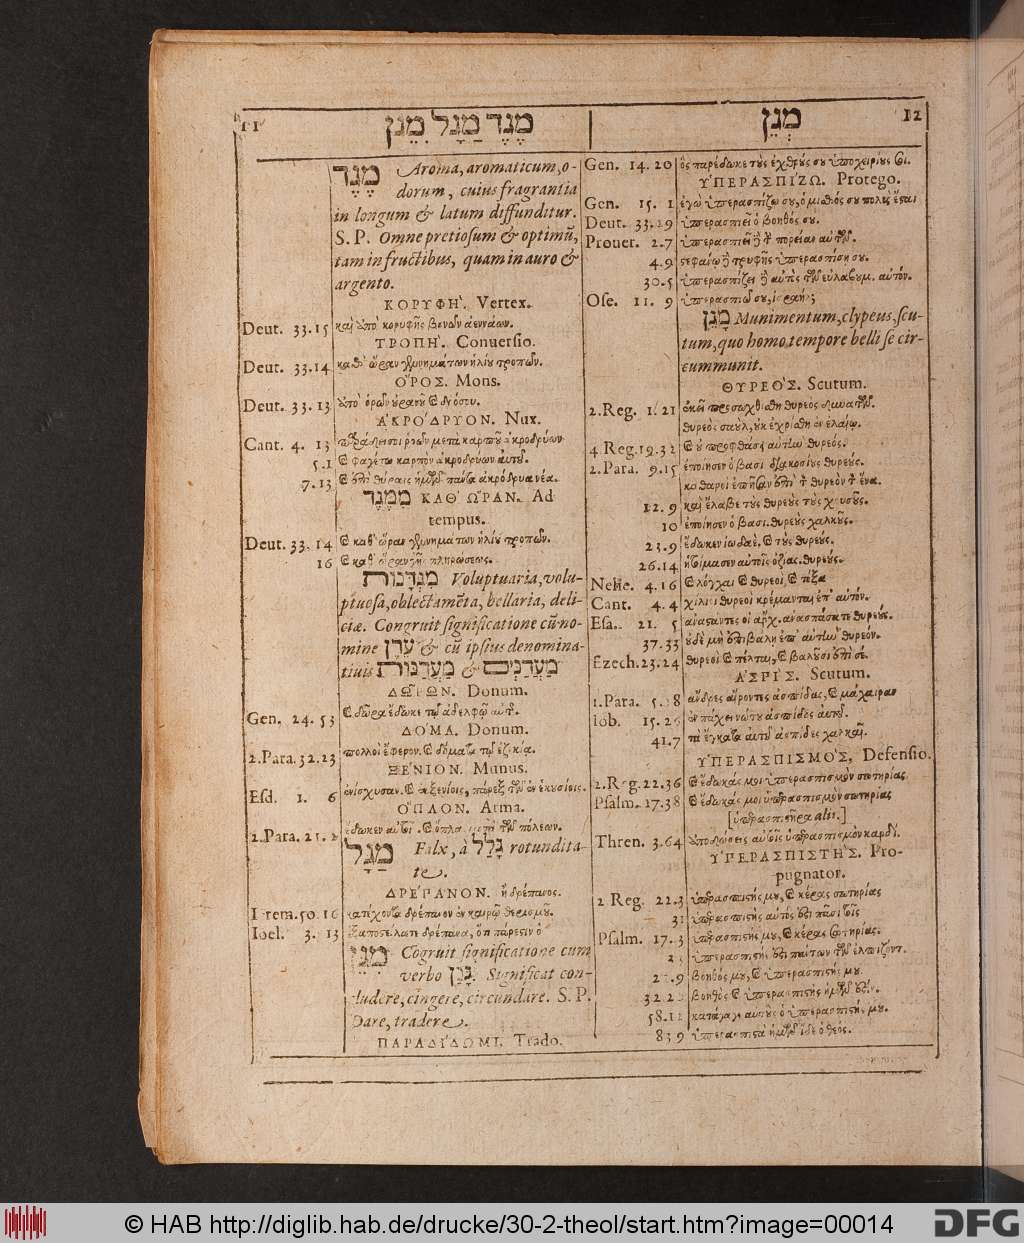 11 מֶגֶד מַגָּל מִגֵּן
מֶגֶד Aroma, aromaticum, o-
dorum, cuius fragrantia
in longum & latum diffunditur.
S.P. Omne pretiosum & optimũ,
tam in fructibus, quam in auro &
argento.
ΚΟΡΥΦΗ'. Vertex.
Deut. 33.15 καὶ ὑπὸ κορυφῆς βουνῶν ἀεννάων.
ΤΡΟΠΗ'. Conuersio.
Deut. 33.14 καθ' ὥραν γεννημάτων ἡλίου τροπῶν.
ΟΡΟΣ. Mons.
Deut. 33.13
ΑΚΡΟΔΡΥΟΝ. Nux.
Cant. 4. 13 μετὰ καρποῦ ἀκροδρύων
5.1 καὶ φαγέτω καρπὸν ἀκροδρύων αὐτοῦ.
7.13 καὶ ἐπὶ θύραις ἡμῶν πάντα ἀκρόδρυα νέα.
מִמֶּגֶד ΚΑΘ' ΩΡΑΝ. Ad
tempus.
Deut. 33. 14 καὶ καθ' ὥραν γεννημάτων ἡλίου τροπῶν.
16 καὶ καθ' ὥραν γῆς πληρώσεως.
מִגְדָּנוֹת Voluptuaria, volu-
ptuosa, oblectamẽta, bellaria, deli-
ciæ. Congruit significatione cũ no-
mine עֵדֶן & cũ ipsius denomina-
tiuis מַעֲדַנִּים & מַעֲדַנּוֹת
ΔΩΡΟΝ. Donum.
Gen. 24. 53 καὶ δῶρα ἔδωκε τῷ ἀδελφῷ αὐτῆς.
ΔΟΜΑ. Donum.
2.Para. 32.23 πολλοὶ ἔφερον καὶ δόματα τῷ ἐζεκίᾳ.
ΞΕΝΙΟΝ. Munus.
Esd. 1. 6
ΟΠΛΟΝ. Arma.
2.Para. 21. ἔδωκεν αὐτοῖς
מַגָּל Falx, à גָּלַל rotundita-
te.
ΔΡΕΠΑΝΟΝ. ἢ δρέπανος.
Ierem. 50. 16 κατέχοντα δρέπανον ἐν καιρῷ θερισμοῦ.
Ioel. 3. 13 ἐξαποστείλατε δρέπανα, ὅτι πάρεστιν ὁ
מִגֵּן Cogruit significatione cum
verbo גָּנַן Significat con-
cludere, cingere, circundare. S.P.
Dare, tradere.
ΠΑΡΑΔΙΔΩΜΙ. Trado.
מִגֵּן 12
Gen. 14. 20 ὃς παρέδωκε τοὺς ἐχθρούς σου ὑποχειρίους σοι.
ΥΠΕΡΑΣΠΙΖΩ. Protego.
Gen. 15. 1 ἐγὼ ὑπερασπίζω σου, ὁ μισθός σου πολὺς ἔσται
Deut. 33.29 ὑπερασπιεῖ ὁ βοηθός σου.
Prouer. 2.7 ὑπερασπιεῖ
4.9 ὑπερασπίσῃ σου.
30.5 ὑπερασπίζει
Ose. 11. 9 ὑπερασπιῶ σου,
מָגֵן Munimentum, clypeus, scu-
tum, quo homo tempore belli se cir-
cummunit.
ΘΥΡΕΟΣ. Scutum.
2.Reg. 1.21 ἐκεῖ προσωχθίσθη θυρεὸς δυνατῶν.
θυρεὸς σαοὺλ, οὐκ ἐχρίσθη ἐν ἐλαίῳ.
4 Reg. 19.32 καὶ οὐ προφθάσει αὐτὴν θυρεός.
2.Para. 9.15 ἐποίησεν ὁ βασι. διακοσίους θυρεούς.
12. 9 καὶ ἔλαβε τοὺς θυρεοὺς τοὺς χρυσοῦς.
10 ἐποίησεν ὁ βασι. θυρεοὺς χαλκοῦς.
23.9 ἔδωκεν ἰωδαὲ καὶ τοὺς θυρεούς.
26.14 ἡτοίμασεν αὐτοῖς ὀζίας θυρεούς.
Nehe. 4.16 καὶ λόγχαι καὶ θυρεοὶ, καὶ τόξα
Cant. 4.4 χίλιοι θυρεοὶ κρέμανται ἐπ' αὐτόν.
Esa. 21. 5 ἀναστάντες οἱ ἄρχ. θυρεούς.
37.33 οὐδὲ μὴ ἐπιβάλῃ ἐπ' αὐτὴν θυρεόν.
Ezech. 23.24 θυρεοὶ καὶ πέλται, καὶ βαλοῦσι ἐπὶ σέ.
ΑΣΠΙΣ. Scutum.
1.Para. 5.18 ἄνδρες αἴροντες ἀσπίδας, καὶ μάχαιραν
Iob. 15.26 ἐν πάχει νώτου ἀσπίδος αὐτοῦ.
41.7 τὰ ἔγκατα αὐτοῦ ἀσπίδες χαλκαῖ.
ΥΠΕΡΑΣΠΙΣΜΟΣ, Defensio.
2.Reg. 22.36 καὶ ἔδωκάς μοι ὑπερασπισμὸν σωτηρίας
Psalm. 17.38 καὶ ἔδωκάς μοι ὑπερασπισμὸν σωτηρίας
Thren. 3.64 ὑπερασπισμὸν καρδί.
ΥΠΕΡΑΣΠΙΣΤΗΣ. Pro-
pugnator.
2 Reg. 22.3 ὑπερασπιστής μου, καὶ κέρας σωτηρίας
31 ὑπερασπιστὴς αὐτός ἐστι πᾶσι τοῖς
Psalm. 17.3 ὑπερασπιστής μου, καὶ κέρας σωτηρίας.
ὑπερασπιστής ἐστι πάντων τῶν ἐλπιζόντ.
βοηθός μου, καὶ ὑπερασπιστής μου.
βοηθὸς καὶ ὑπερασπιστὴς ἡμῶν ἐστίν.
58.12 ὁ ὑπερασπιστής μου.
83 9 ὑπερασπιστὰ ἡμῶν ἴδε ὁ θεός.
© HAB http://diglib.hab.de/drucke/30-2-theol/start.htm?image=00014
DFG